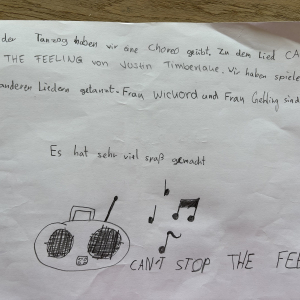 der Tanzag haben wir eine Choreo geübt. Zu dem Lied CA
THE FEELING von Justin Timberlake. Wir haben spiele
anderen Liedern getanzt. Frau Wichord und Frau Gehling sind
Es hat sehr viel spaß gemacht
CAN'T STOP THE FEE